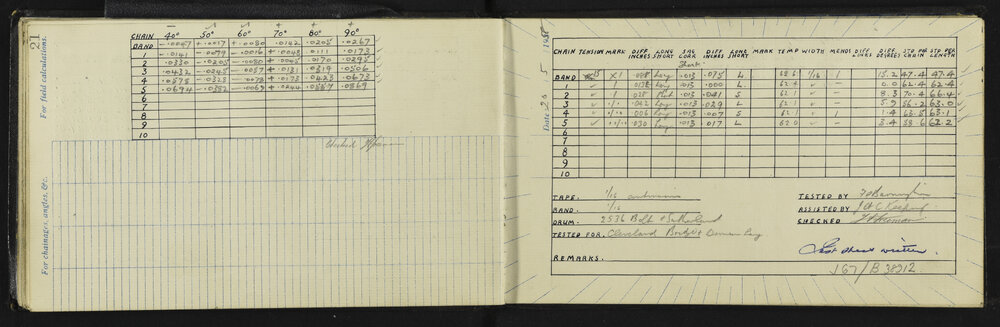 21
For field calculations.
For chainages, angles, &c.
CHAIN 40° 50° 60° 70° 80° 90°
BAND -.0047 +.0017 +.0080 .0142 .0205 .0267
1 -.0141 -.0079 -.0016 +.0048 .0111 .0173
2 .0330 .0205 -.0080 +.0005 .0170 .0295
3 .0432 .0245 -.0057 +.0131 .0319 .0506
4 .0578 .0328 -.0078 +.0173 .0423 .0673
5 .0694 .0382 -.0069 +.0244 .0557 .0869
6
7
8
9
10
Checked
Date 5 1958
CHAIN TENSION MARK DIFF INCHES LONG SHORT SAG CORR DIFF INCHES LONG SHORT MARK TEMP WIDTH MENDS DIFF LINKS DIFF DEGREES STD PER CHAIN STD PER LENGTH
Short
BAND 15 X1 .088 Long .013 .075 L 68.6 1/16 1 15.2 47.4 47.4
1 ✓ 1 .013 Long .013 .000 L 62.4 ✓ — 0.0 62.4 62.4
2 ✓ 1 .028 .013 .041 S 62.1 ✓ — 8.3 70.4 66.4
3 ✓ Long .013 .029 L 62.1 ✓ — 5.9 56.2 63.0
4 ✓ .006 Long .013 .007 S 62.1 ✓ 1 1.4 63.5 63.1
5 ✓ .030 Long .013 .017 L 62.0 ✓ — 3.4 58.6 62.2
6
7
8
9
10
TAPE. 1/16
BAND. 1/16
DRUM. 2536 Bolt & Sutherland
TESTED FOR. Cleveland Bridge &
REMARKS.
TESTED BY
ASSISTED BY J H C Keeping
CHECKED
Last sheet written
J67/B 38912.